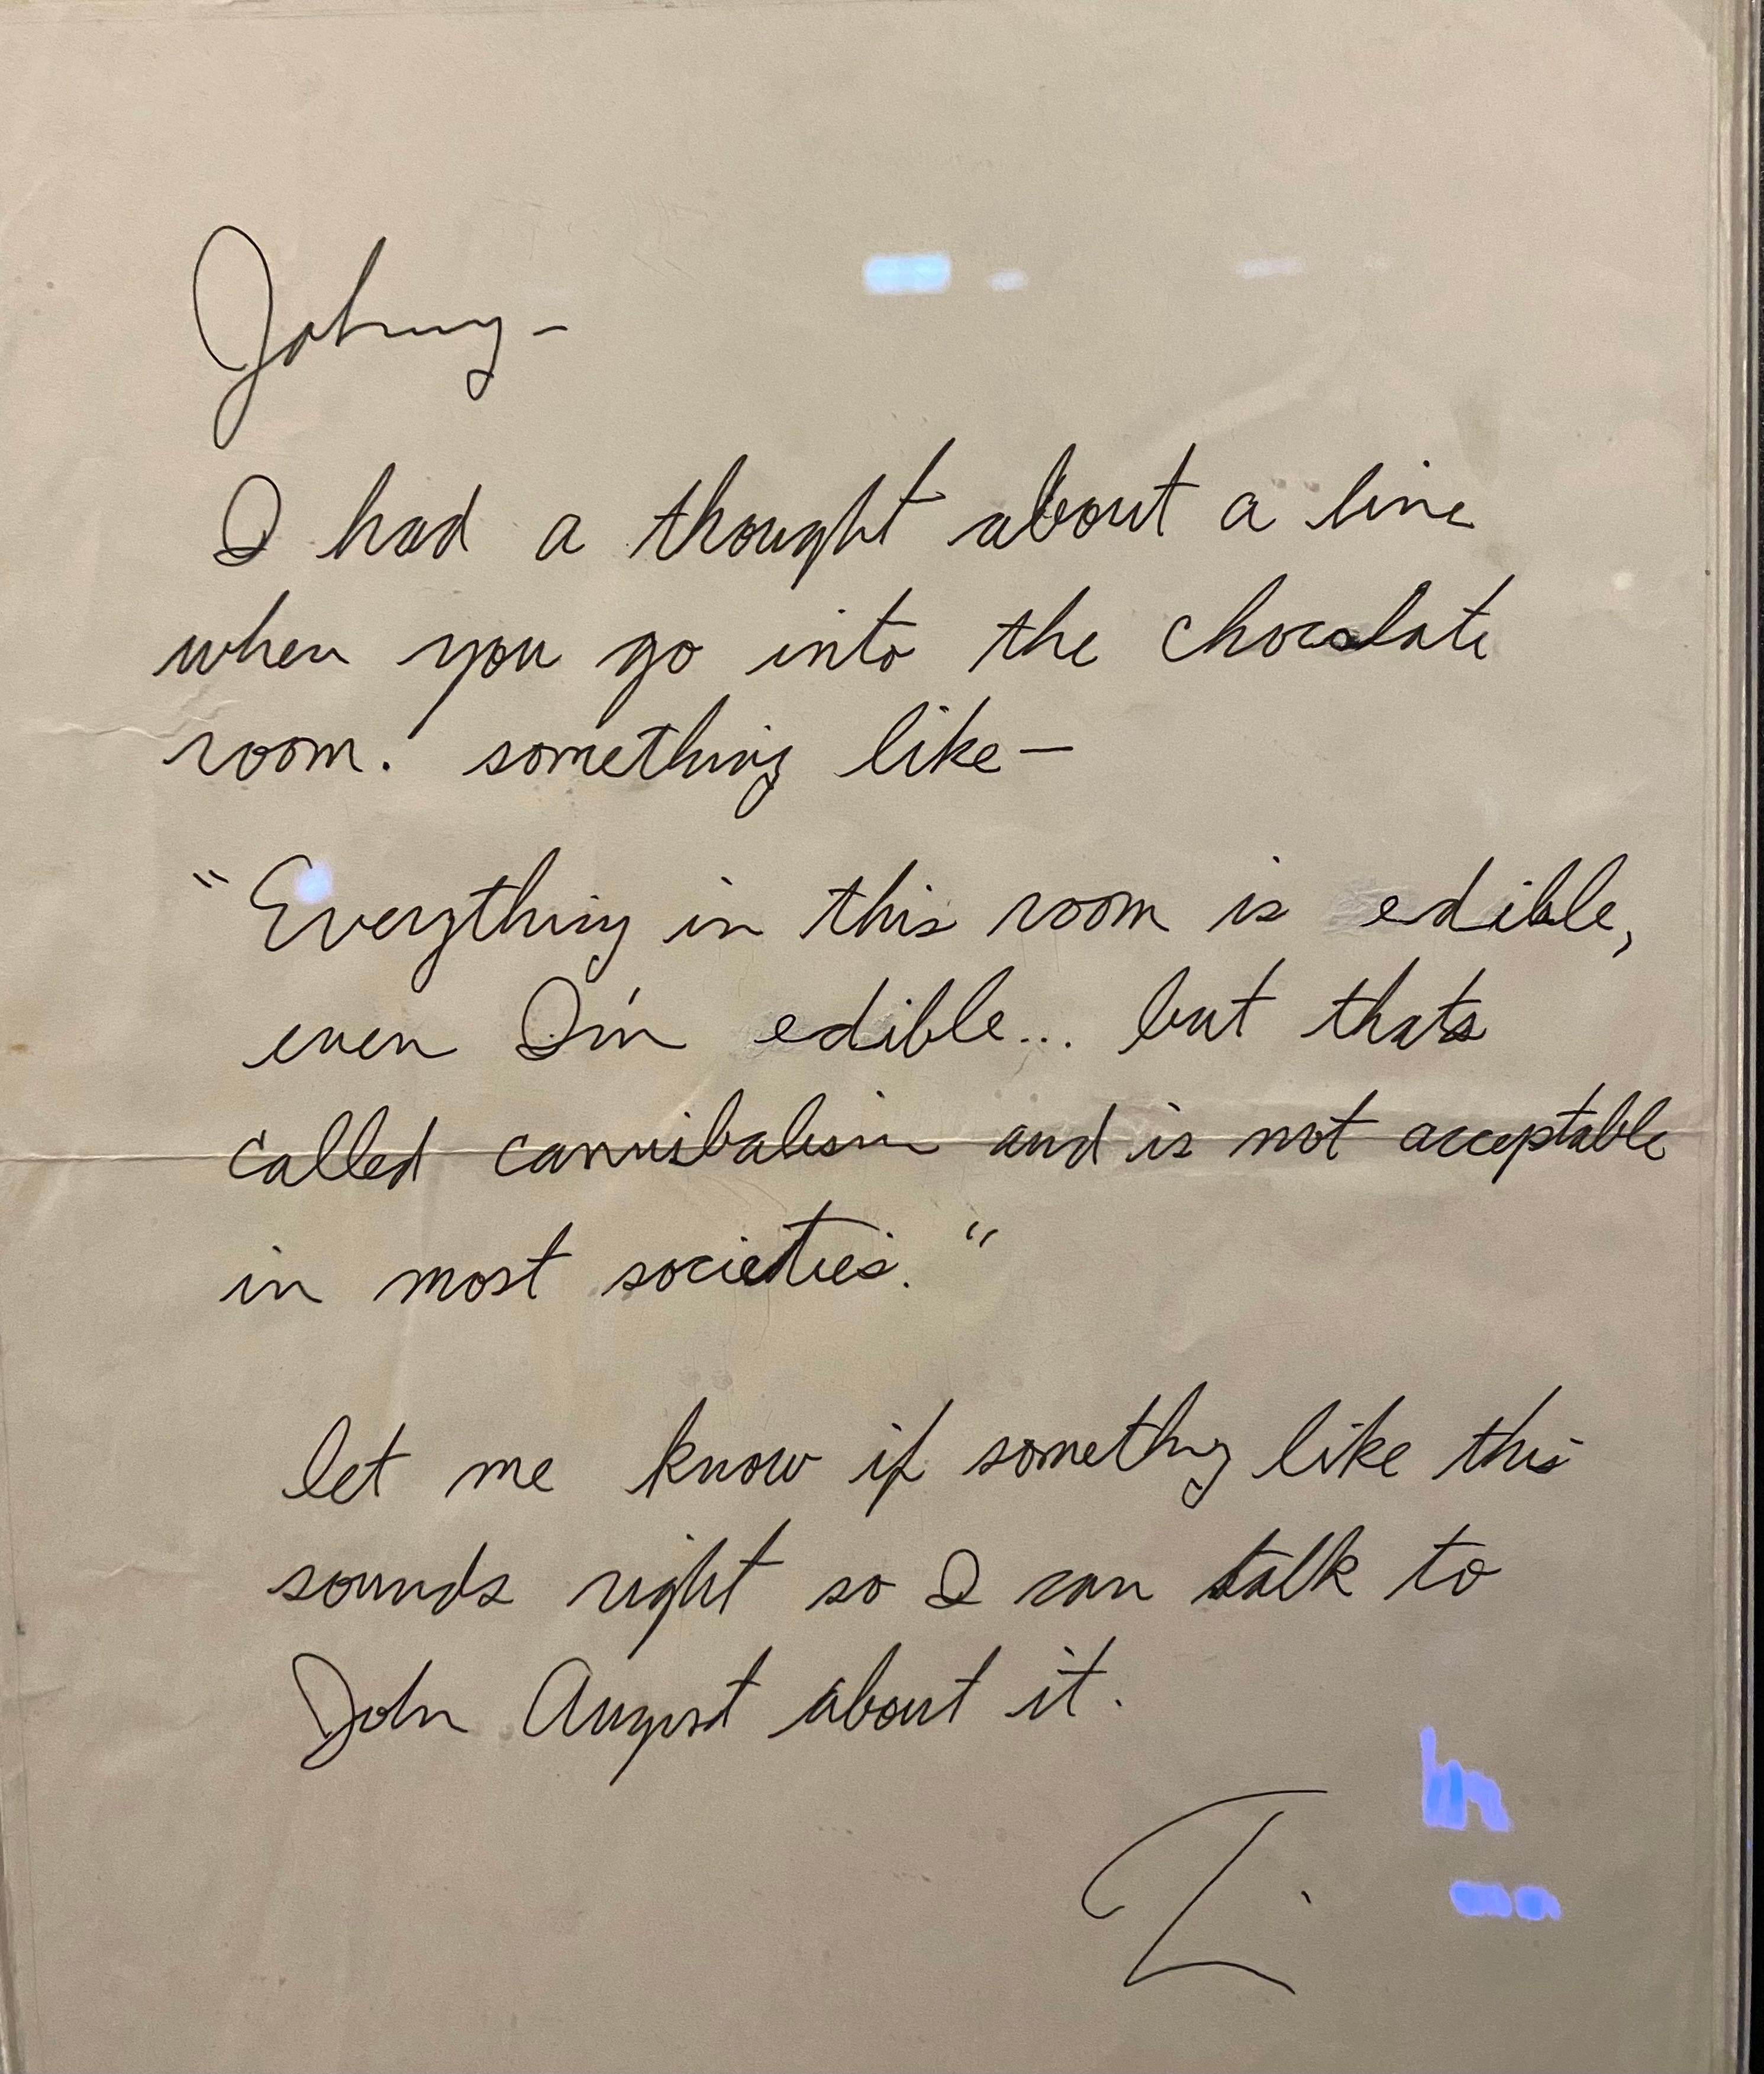 Johnny-
I had a thought about a line
when you go into the chocolate
room. something like—
"Everything in this room is edible,
even I'm edible... but thats
called cannibalism and is not acceptable
in most societies."
let me know if somethng like this
sounds right so I can talk to
John August about it.